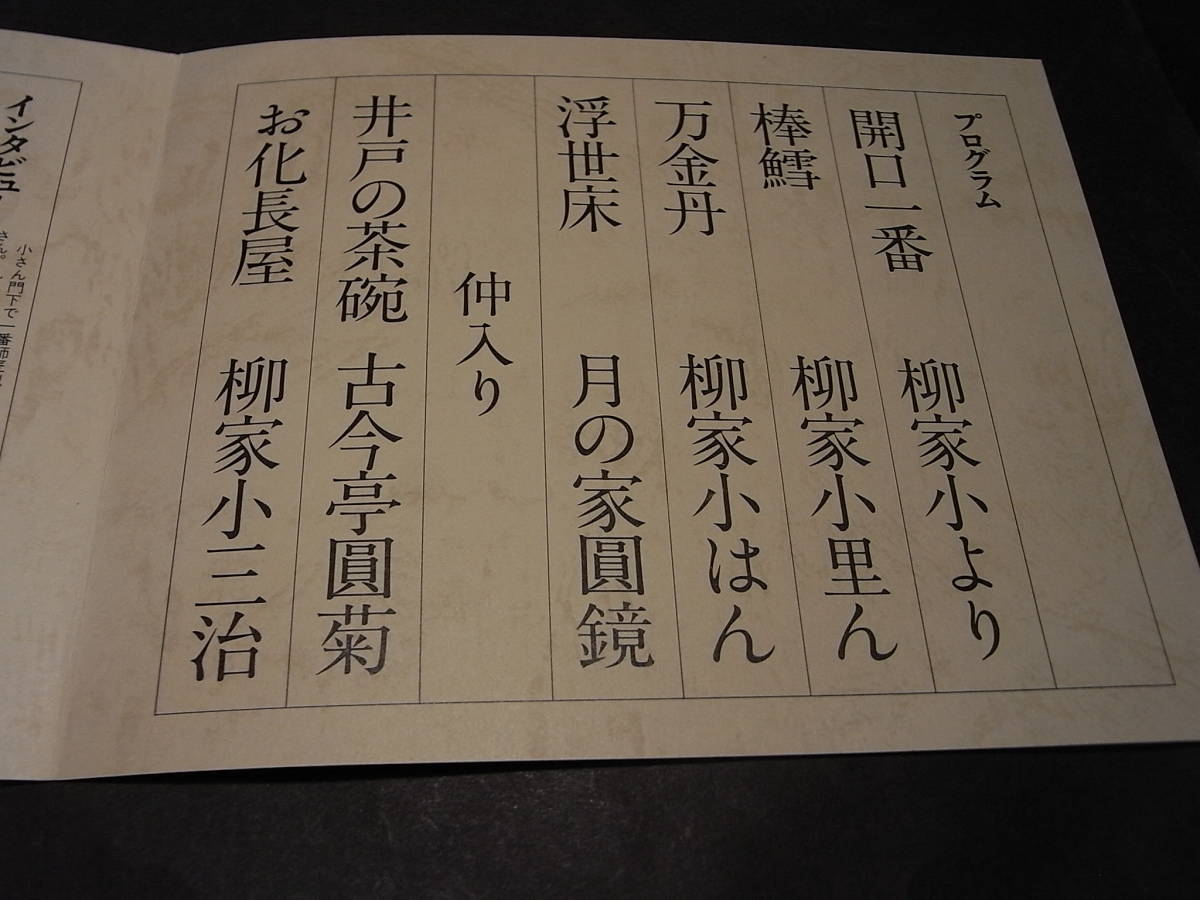 プログラム
開口一番 柳家小より
棒鱈 柳家小里ん
万金丹 柳家小はん
浮世床 月の家圓鏡
仲入り
井戸の茶碗 古今亭圓菊
お化長屋 柳家小三治
インタビュー
小さん門下で一番
さん。